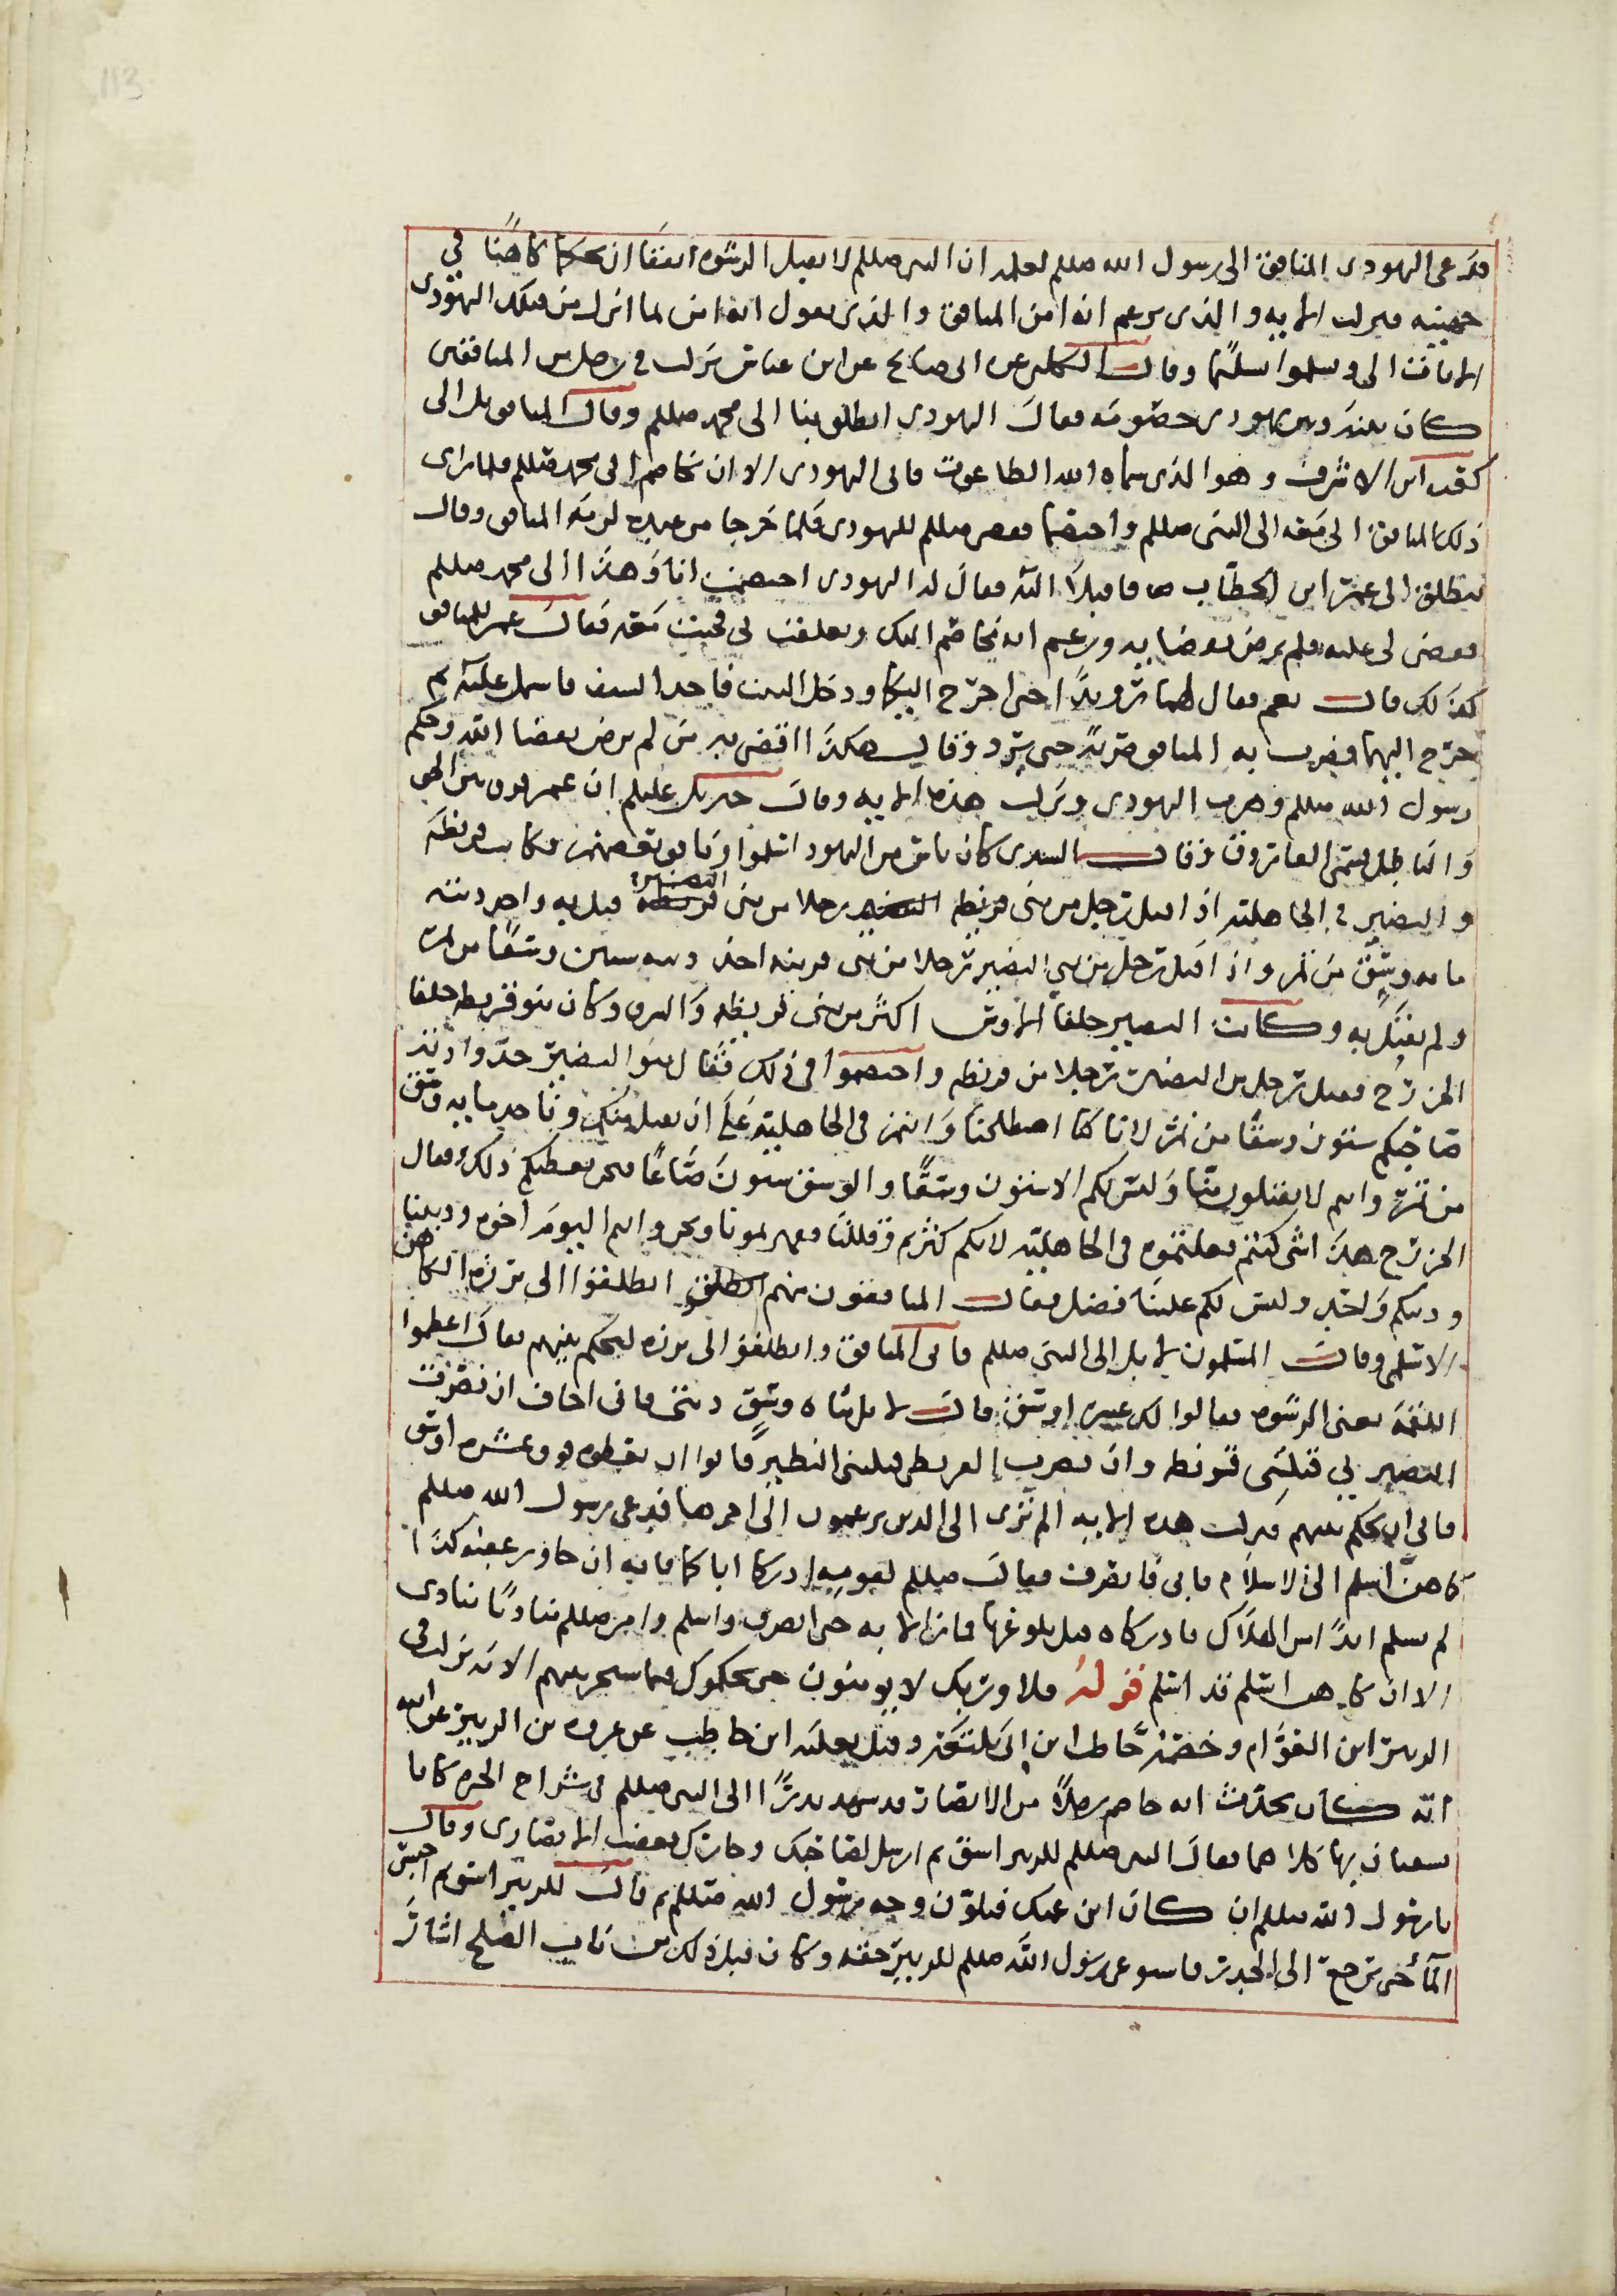 فدعى اليهودي المنافق الى رسول الله صللم لعلمه ان النبي صللم لا يقبل الرشوه اتفقا ان يحكما كاهنا في
جهينه فنزلت الايه والذي يزعم انه امن المنافق والذي يقول انه امن لما انزل من قبلك اليهودي
الايات الى وسلموا تسليما وقال الكلبي عن ابي صالح عن ابن عباس نزلت في رجل من المنافقين
كان بينه وبين يهودي خصومه فقال اليهودي انطلق بنا الى محمد صللم وقال المنافق بل الى
كعب ابن الاشرف وهو الذي سماه الله الطاغوت فابى اليهودي الا ان تخاصم الى محمد صللم فلما راى
ذلك المنافق اتى معه الى النبي صللم واختصما فقضى صللم لليهودي فلما خرجا من عنده لزمه المنافق وقال
ننطلق الى عمر ابن الخطاب فاقبلا اليه فقال له اليهودي اختصمت انا وهذا الى محمد صللم
فقضى لي عليه فلم يرض بقضايه وزعم انه يخاصم اليك وتعلق بي فجيت معه فقال عمر للمنافق
كذلك قال نعم فقال لهما رويدا حتى اخرج اليكما ودخل البيت فاخذ السيف فاشتمل عليه ثم
خرج اليهما فضرب به المنافق ضربة حتى برد وقال هكذا اقضي بين من لم يرض بقضا الله وحكم
رسول الله صللم وهرب اليهودي ونزلت هذه الايه وقال جبريل عليلم ان عمر فرق بين الحق
والباطل يسمى الفاروق وقال السدي كان ناس من اليهود اسلموا ونافق بعضهم وكانت قريظه
والنضير في الجاهليه اذا قتل رجل من بني قريظه رجلا من بني النضير قتل به واخذ ديته
مايه وسق من تمر واذا قتل رجل من بني النضير رجلا من بني قريضه اخذ ديته ستين وسقا من تمر
ولم يقتل به وكانت النضير حلفا الاوس اكثر من بني قريظه واشرف وكان بنو قريظه حلفا
الخزرج فقتل رجل من النضير رجلا من قريظه واختصموا في ذلك فقال بنو النضير خذوا ديه
صاحبكم ستون وسقا من تمر لانا كنا اصطلحنا وانتم في الجاهلية على ان نقتل منكم وناخذ مايه وسق
من تمر وانتم لا تقتلون منا وليس لكم الا ستون وسقا والوسق ستون صاعا فنحن نعطيكم ذلك فقال
الخزرج هذا شي كنتم فعلتموه في الجاهليه لانكم كثرتم وقللنا فقهرتمونا ونحن وانتم اليوم اخوه وديننا
ودينكم واحد وليس لكم علينا فضل فقال المنافقون منهم انطلقوا الى برزه الكاهن
الاسلمي وقال المسلمون لا بل الى النبي صللم فابى المنافق وانطلقوا الى برزه ليحكم بينهم فقال اعظموا
اللقمه يعني الرشوه فقالوا لك عشره اوسق قال لا بل مئاه وسق ديتي فاني اخاف ان نفرت
النضير بي قتلتني قريظه وان نفرت القريظي قتلتني النضير قالوا ان يعطوه فوق عشره اوسق
فابى ان يحكم بينهم فنزلت هذه الايه الم ترى الى الذين يزعمون الى اخرها فدعى رسول الله صللم
كاهن اسلم الى الاسلام فابى فانصرف فقال صللم لقوميه ادركا اباكما فانه ان جاوز عقبه كذا
لم يسلم ابدا اين الهلاك فادركاه قبل بلوغها فان زالا به حتى انصرف واسلم وامر صللم مناديا ينادي
الا ان كاهن اسلم قد اسلم قوله فلا وربك لا يومنون حتى يحكموك فيما شجر بينهم الايه نزلت في
الزبير ابن العوام وخصمه حاطب ابن ابي بلتعه وقيل ثعلبه ابن حاطب عن عروه بن الزبير عن ابيه
انه كان يحدث انه خاصم رجلا من الانصار قد شهد بدرا الى النبي صللم في شراج الحره كانا
يسقيان بها كلاهما فقال النبي صللم للزبير اسق ثم ارسل لصاحبك وجارك فغضب الانصاري وقال
يا رسول الله صللم ان كان ابن عمك فتلون وجه رسول الله صللم ثم قال للزبير اسق ثم احبس
المآ حتى يرجع الى الجدر فاستوعى رسول الله صللم للزبير حقه وكان قبل ذلك من باب الصلح اشار